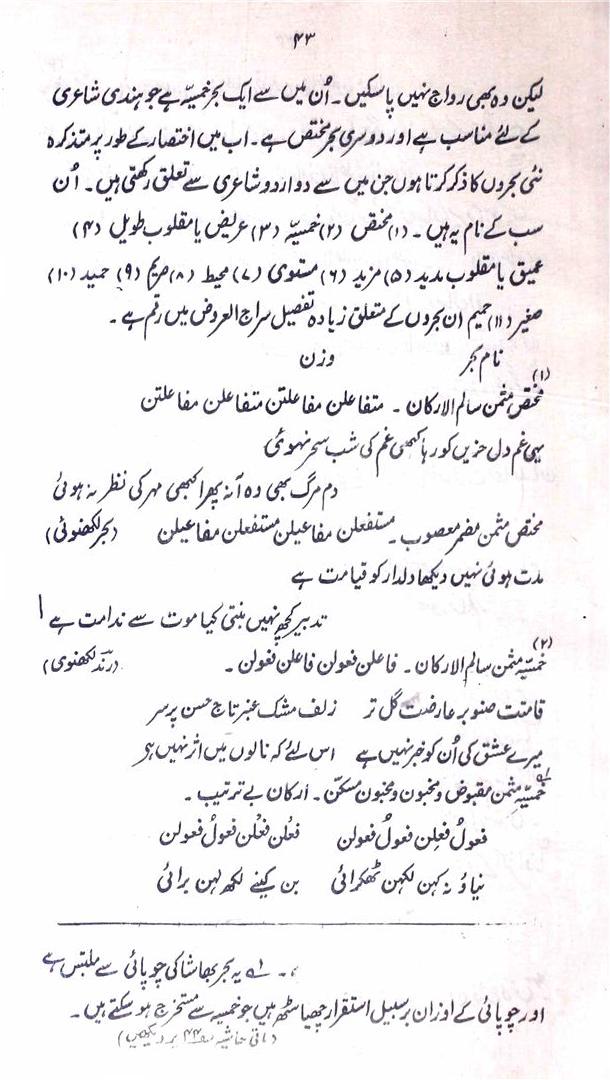 ۴۳
لیکن وہ بھی رواج نہیں پا سکیں۔ اُن میں سے ایک بحر خمسیّہ ہے جو ہندی شاعری
کے لئے مناسب ہے اور دوسری بحر مختص ہے۔ اب میں اختصار کے طور پر متذکرہ
نئی بحروں کا ذکر کرتا ہوں جن میں سے دو اردو شاعری سے تعلق رکھتی ہیں۔ اُن
سب کے نام یہ ہیں۔ (۱) مختص (۲) خمسیّہ (۳) عریض یا مقلوب طویل (۴)
عمیق یا مقلوب مدید (۵) مزید (۶) مستوی (۷) محیط (۸) صریم (۹) حمید (۱۰)
صغیر (۱۱) حمیم ان بحروں کے متعلق زیادہ تفصیل سراج العروض میں رقم ہے۔
نام بحر وزن
(۱)
مختص مثمن سالم الارکان۔ متفاعلن مفاعلتن متفاعلن مفاعلتن
یہی غم دل حزیں کو رہا کبھی غم کی شب سحر نہوئی
دم مرگ بھی وہ آنہ پھرا کبھی مہر کی نظر نہ ہوئی
مختص مثمن مضمر معصوب۔ مستفعلن مفاعیلن مستفعلن مفاعیلن (بحر لکھنوئی)
مدت ہوئی نہیں دیکھا دلدار کو قیامت ہے
تدبیر کچھ نہیں بنتی کیا موت سے ندامت ہے
(۲)
خمسیّہ مثمن سالم الارکان۔ فاعلن فعولن فاعلن فعولن۔ (رند لکھنوی)
قامتت صنوبر عارضت گل تر زلف مشک عنبر تاج حسن بر سر
میرے عشق کی اُن کو خبر نہیں ہے اس لئے کہ نالوں میں اثر نہیں ہی
خمسیّہ مثمن مقبوض و مخبون و مخبون مسکّن۔ ارکان بے ترتیب۔ ؎۱
فعولُ فعِلن فعولُ فعولن فعلن فعْلن فعولُ فعولن
نیاؤ نہ کہن لکہن ٹھکرائی بن کینے لکھ لہن برائی
؎۱ یہ بحر بھاشا کی چوپائی سے ملتبس ہے
اور چوپائی کے اوزان برسبیل استقرار چھیاسٹھ ہیں جو خمسیہ سے مستخرج ہو سکتے ہیں۔
(باقی حاشیہ صفحہ ۴۴ پر دیکھیں)